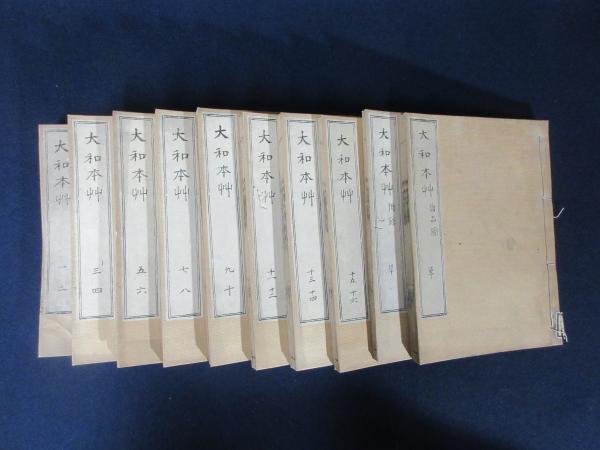 大和本艸 一 二
大和本艸 三 四
大和本艸 五 六
大和本艸 七 八
大和本艸 九 十
大和本艸 十一 十二
大和本艸 十三 十四
大和本艸 十五 十六
大和本艸 附録
大和本艸 諸品圖